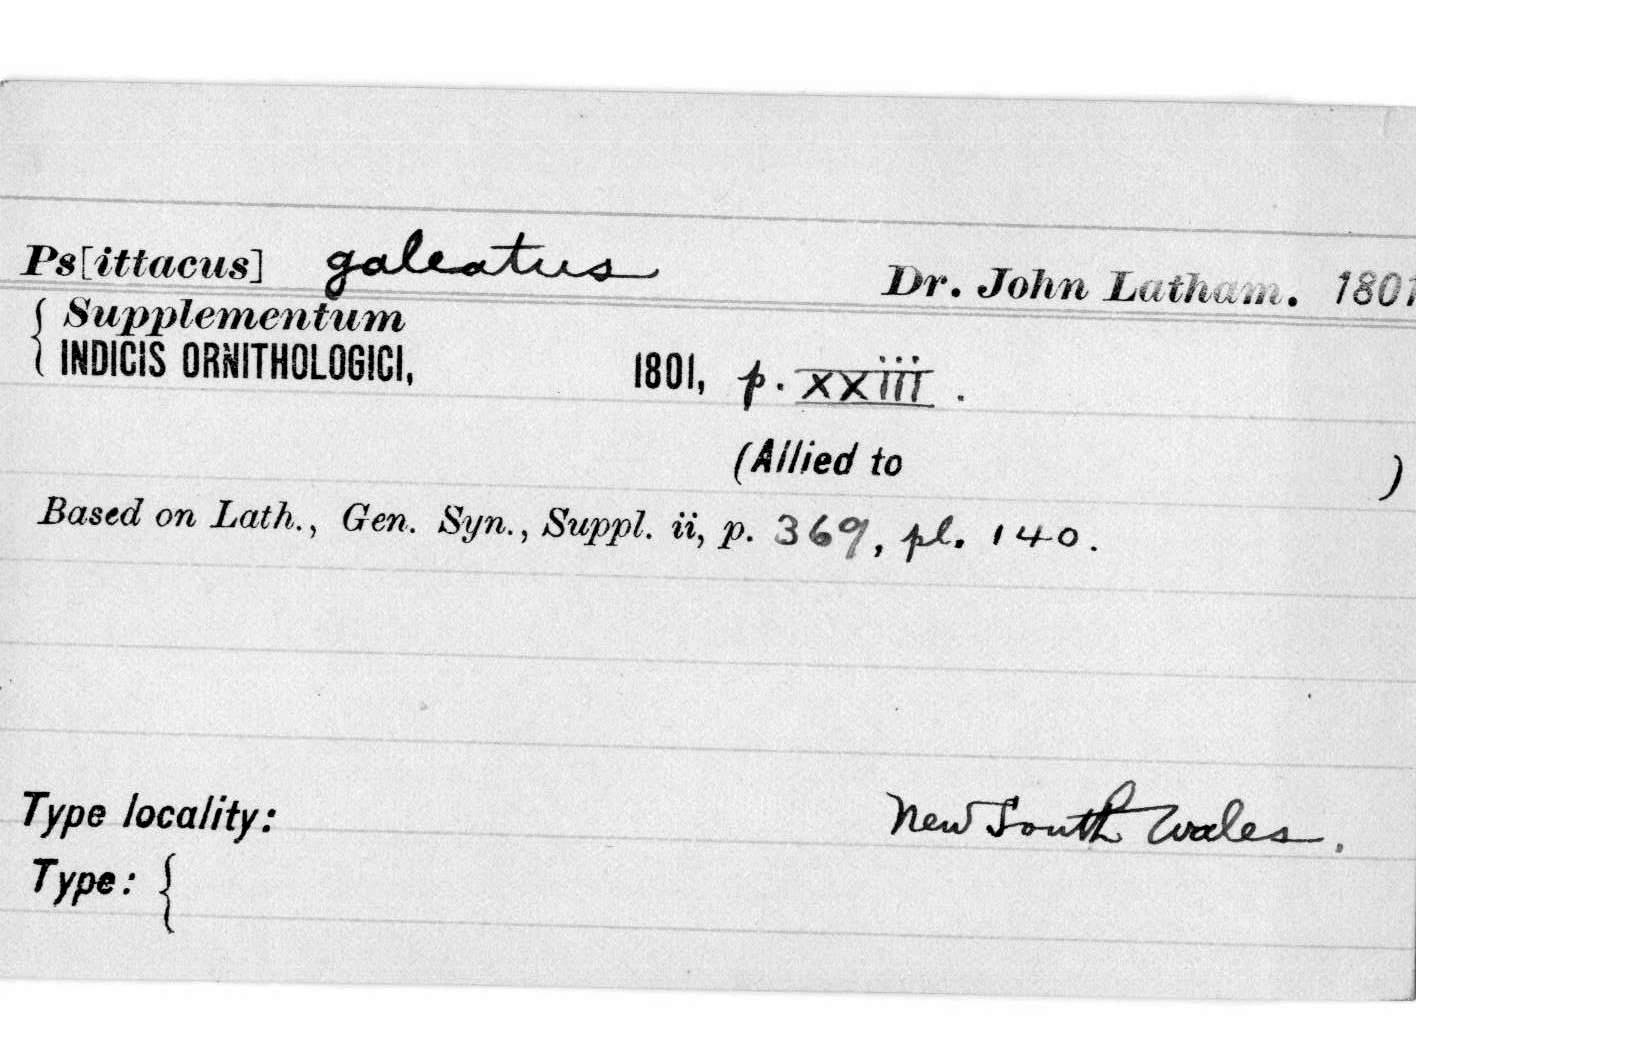 Ps[ittacus] galeatus Dr. John Latham. 1801
{ Supplementum
INDICIS ORNITHOLOGICI, 1801, p. XXIII.
(Allied to )
Based on Lath., Gen. Syn., Suppl. ii, p. 369, pl. 140.
Type locality: New South Wales.
Type: {